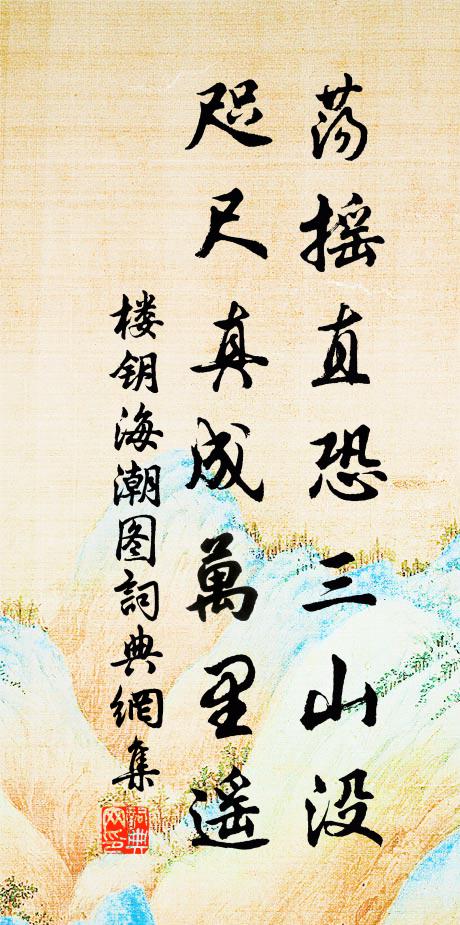 荡摇直恐三山没
咫尺真成萬里遥
楼钥海潮图詞典網集
詞典网印